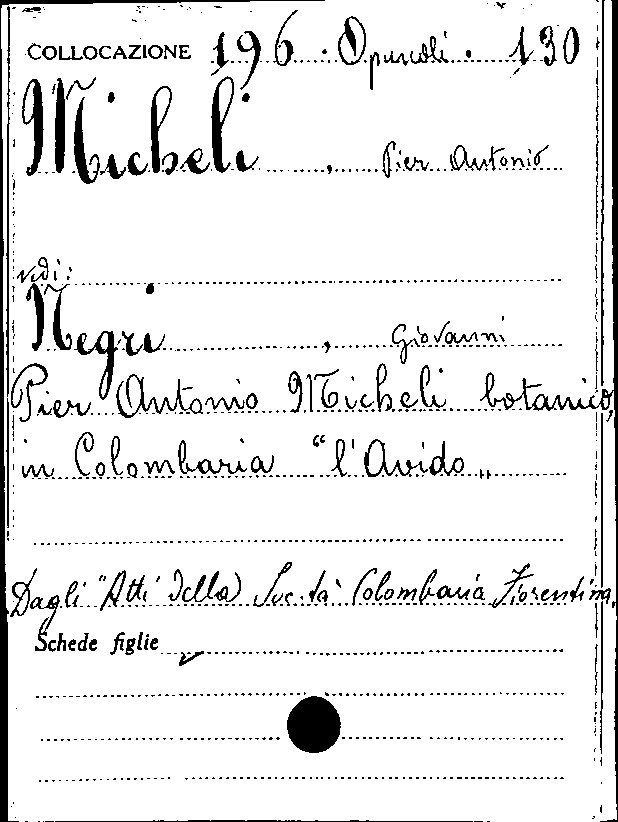 COLLOCAZIONE 196 . Opuscoli . 130
Micheli , Pier Antonio
vedi:
Negri , Giovanni
Pier Antonio Micheli botanico,
in Colombaria "l'Avido„
Dagli "Atti della Società Colombaria Fiorentina.
Schede figlie